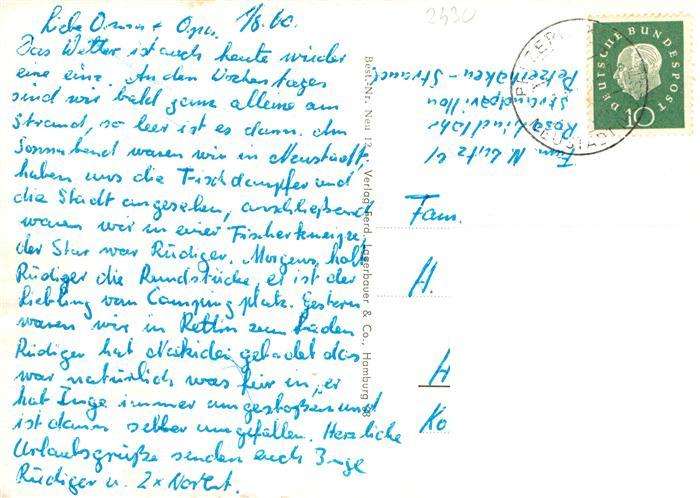 Liebe Omma + Opa. 1/8. 60.
Das Wetter ist auch heute wieder
eine eins. An den Wochentagen
sind wir bald ganz alleine am
Strand, so leer ist es dann. Am
Sonnabend waren wir in Neustadt,
haben uns die Fischdampfer und
die Stadt angesehen, anschließend
waren wir in einer Fischerkneipe,
der Star war Rüdiger. Morgens holt
Rüdiger die Rundstücke er ist der
Liebling vom Campingplatz. Gestern
waren wir in Rettin zum baden
Rüdiger hat Nakidei gebadet das
war natürlich was für ihn, er
hat Inge immer umgestoßen und
ist dann selber umgefallen. Herzliche
Urlaubsgrüße senden euch Inge
Rüdiger u. 2x Norbt.
Best.-Nr. Neu 12 Verlag Ferd. Lagerbauer & Co., Hamburg
2430
Fam.
Rosa Lindlohr
Strandpavillon
Pelzerhaken-Strand
DEUTSCHE BUNDESPOST
10
Fam.
H.
H
Ko